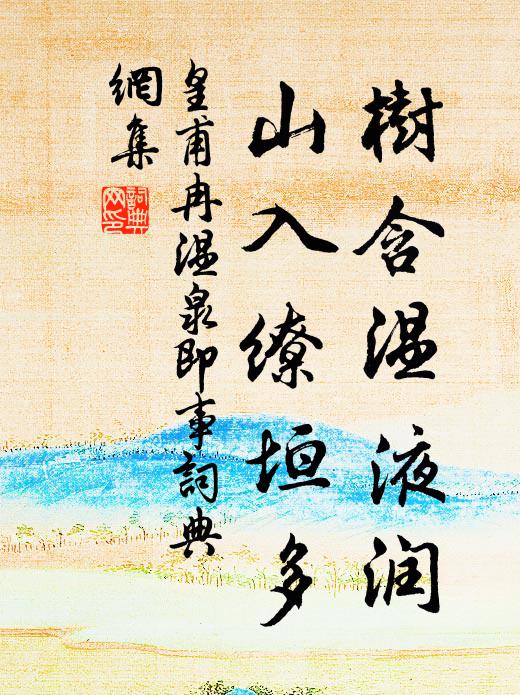 樹含温液润
山入缭垣多
皇甫冉温泉即事詞典
網集
詞典
网印